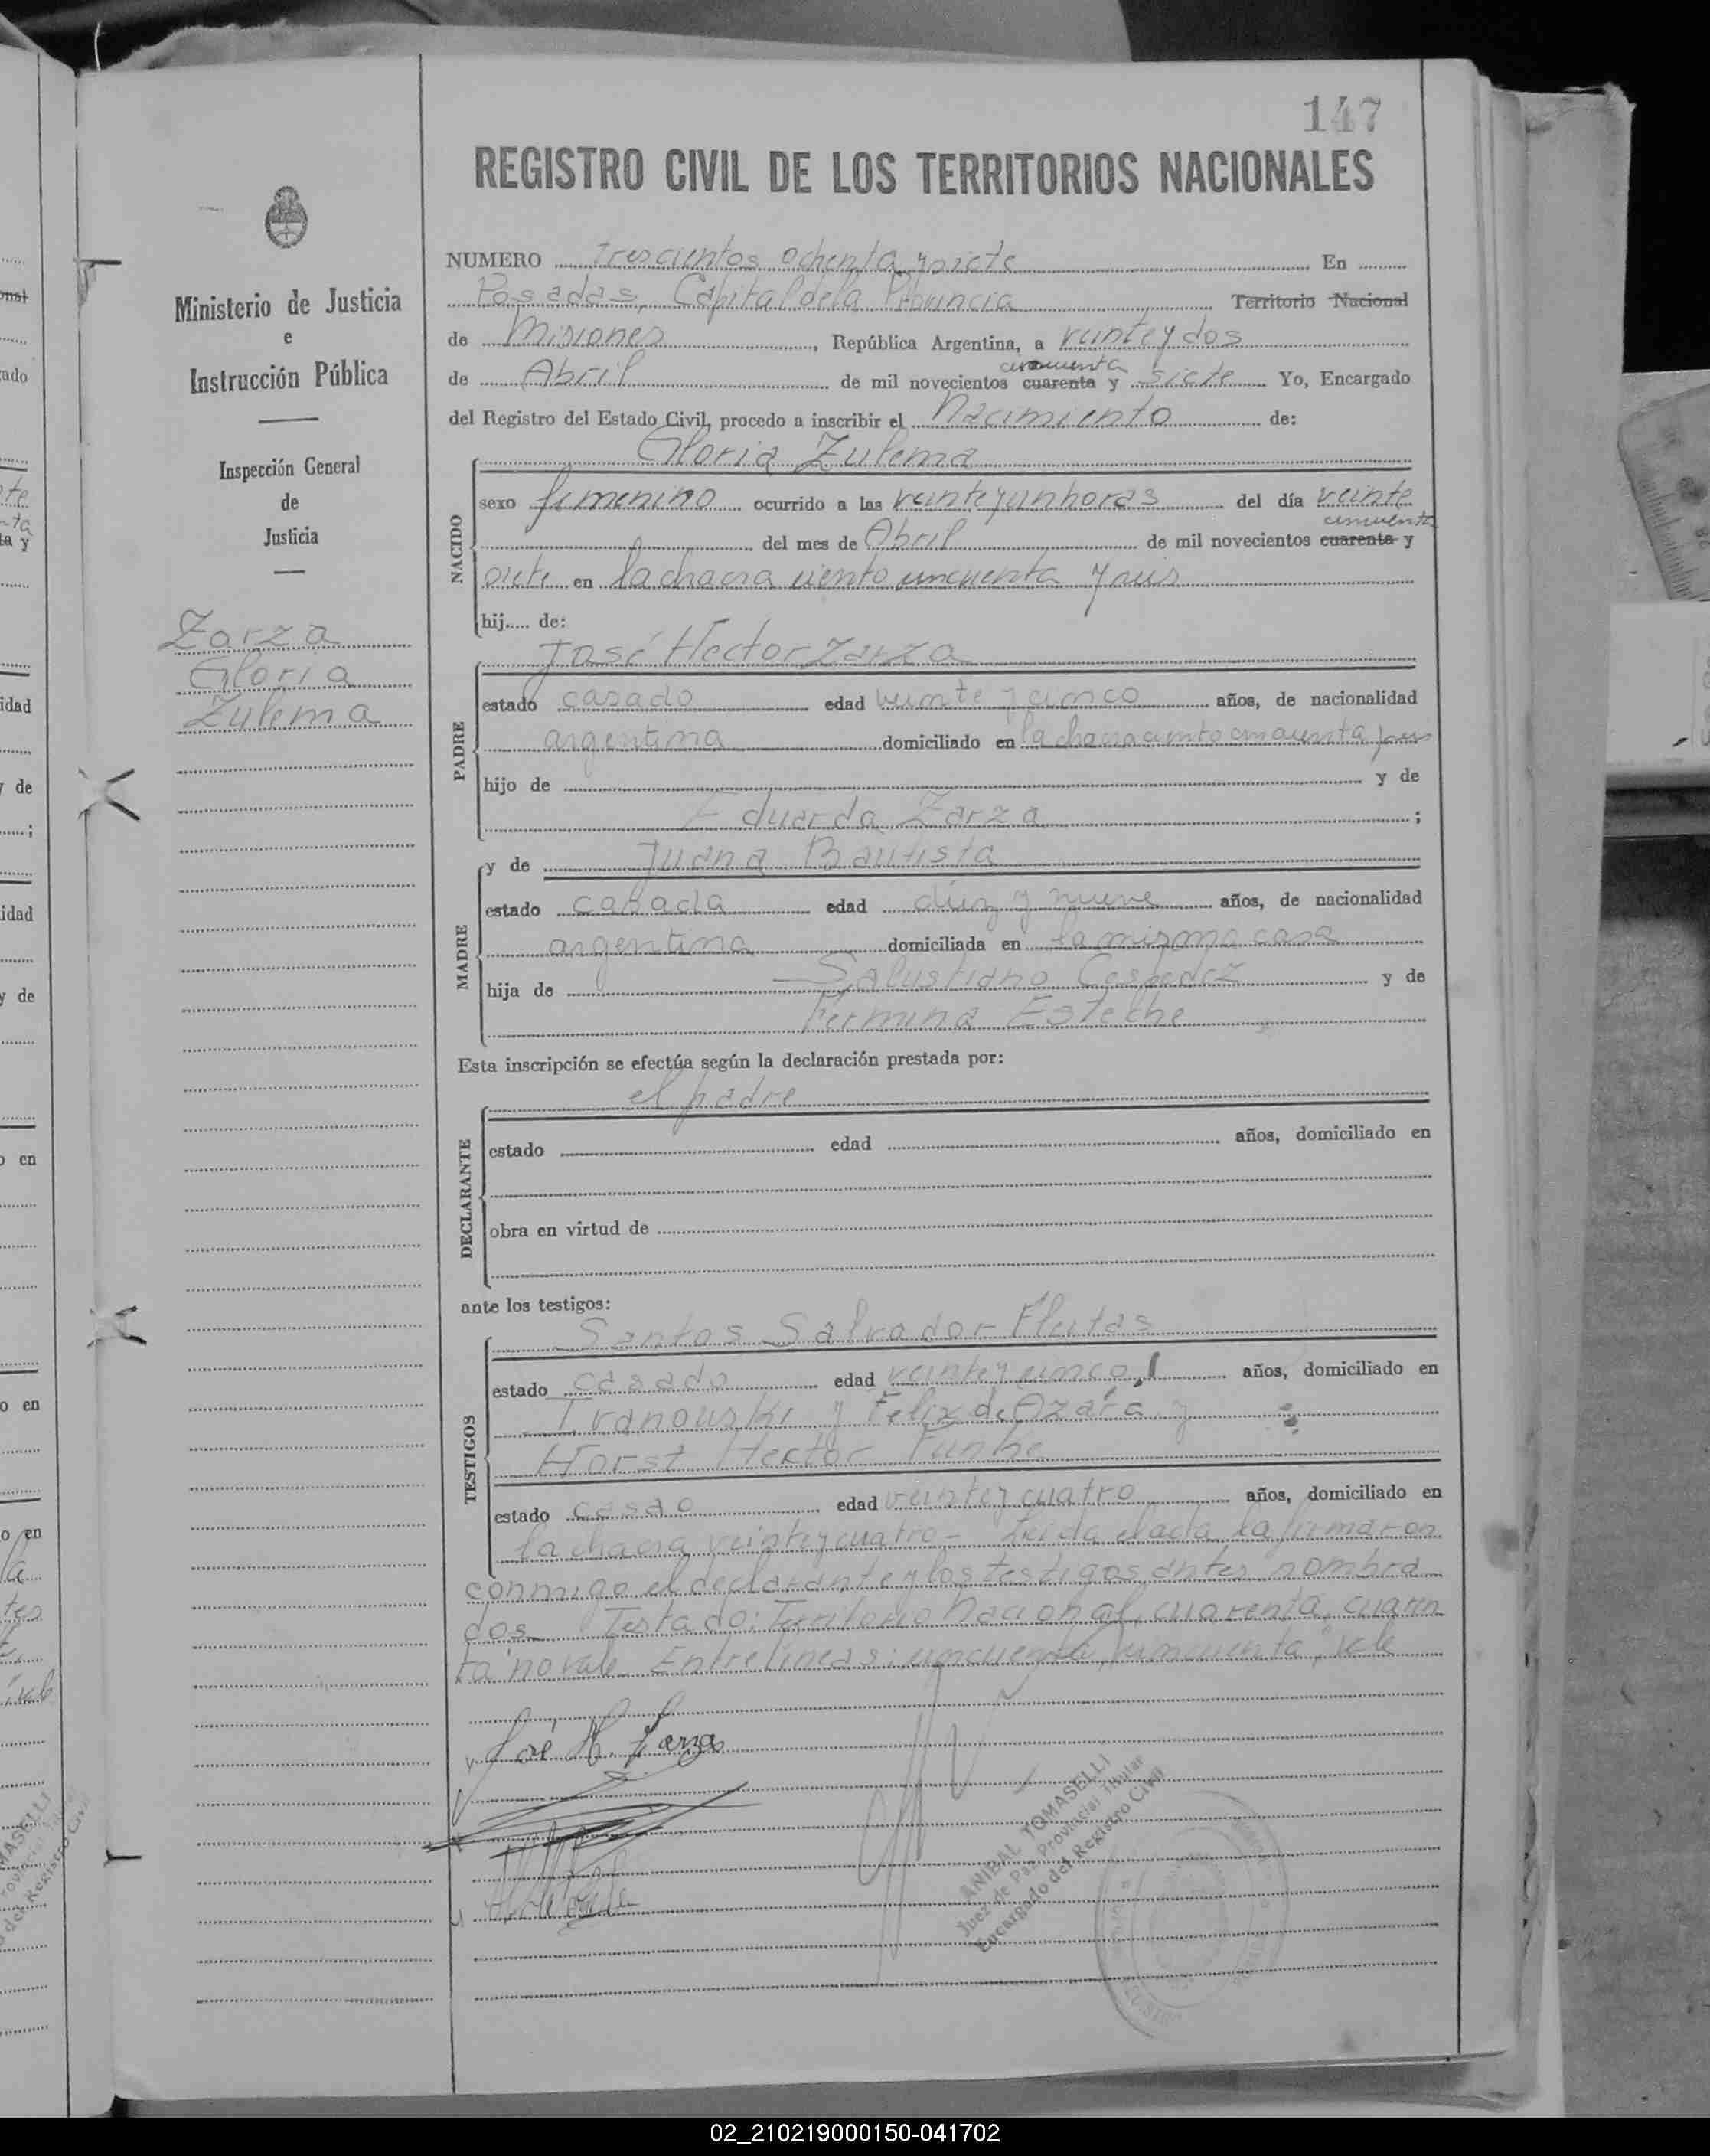 147
REGISTRO CIVIL DE LOS TERRITORIOS NACIONALES
Ministerio de Justicia
e
Instrucción Pública
Inspección General
de
Justicia
Zarza
Gloria
Zulema
NUMERO Trescientos ochenta y siete En
Posadas, Capital de la Provincia Territorio Nacional
de Misiones, República Argentina, a veinte y dos
cincuenta
de Abril de mil novecientos cuarenta y siete Yo, Encargado
del Registro del Estado Civil, procedo a inscribir el Nacimiento de:
Gloria Zulema
NACIDO
sexo femenino ocurrido a las veinte y un horas del día veinte
cincuenta
del mes de Abril de mil novecientos cuarenta y
siete en la chacra ciento cincuenta y seis
hij..... de:
José Hector Zarza
PADRE
estado casado edad veinte y cinco años, de nacionalidad
argentina domiciliado en la chacra ciento cincuenta y seis
hijo de y de
Eduarda Zarza ;
y de Juana Bautista
MADRE
estado casada edad diez y nueve años, de nacionalidad
argentina domiciliada en la misma casa
hija de Salustiano Cespedez y de
Fermina Esteche
Esta inscripción se efectúa según la declaración prestada por:
el padre
DECLARANTE
estado edad años, domiciliado en
obra en virtud de
ante los testigos:
Santos Salvador Fleitas
TESTIGOS
estado casado edad veinte y cinco años, domiciliado en
y Felix de Azara y
Horst Hector
estado casao edad veinte y cuatro años, domiciliado en
la chacra veinte y cuatro - Leida el acta la firmaron
conmigo el declarante y los testigos antes nombra
dos. Testado: Territorio Nacional, cuarenta, cuaren
ta no vale. Entrelineas: cincuenta, cincuenta, vale
José H. Zarza
ANIBAL TOMASELLI
Juez de Paz Provincial Titular
Encargado del Registro Civil
02_210219000150-041702